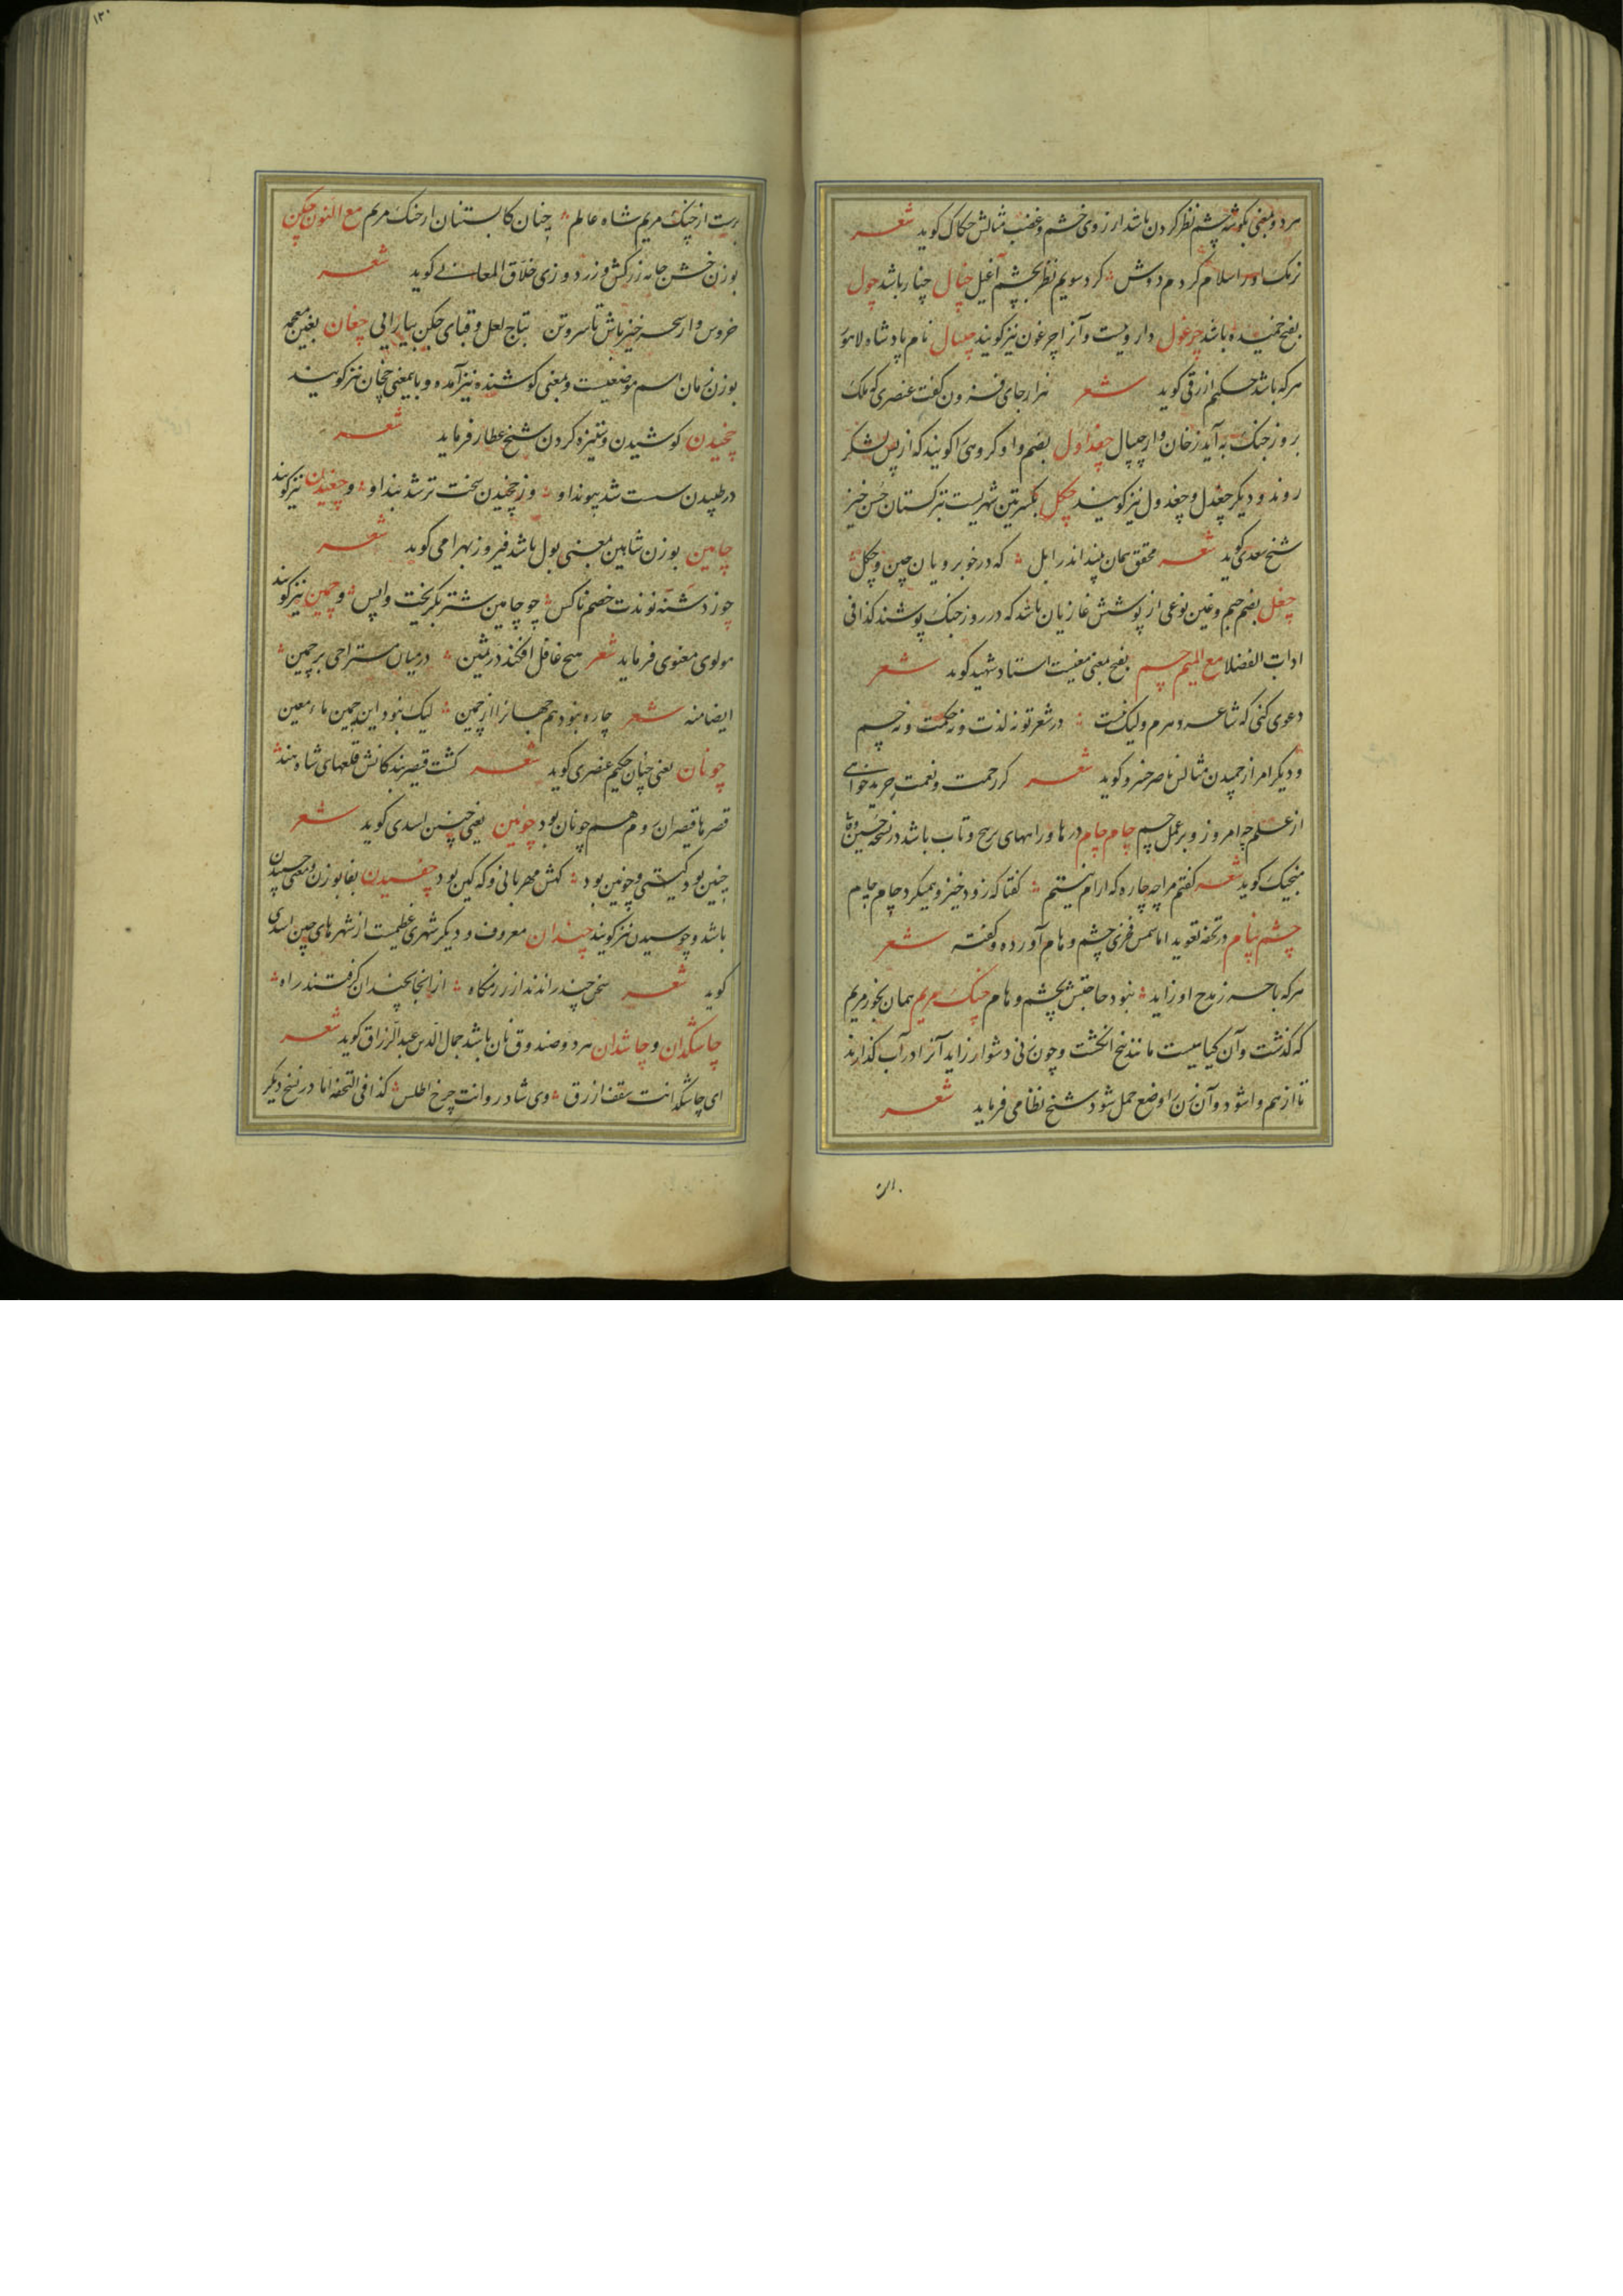 مرد و بمعنی بگوشه چشم نظر کردن باشد از روی خشم و غضب مثالش حکاک کوید شعر
نرمک او را سلام کردم دوش کرد سویم نظر بچشم آغیل چنال چنار باشد چول
بفتح خمیده باشد چرغول دارویست و آنرا چرغون نیز کویند چیپال نام پادشاه لاهور
هر که باشد حکیم ازرقی کوید شعر هزار جای فزون کفت عنصری که ملک
بروز جنک به آید زخان و از چیپال چغداول بضم واو کروهی را کویند که از پس لشکر
روند و دیکر چغدل و چغدول نیز کویند چکل بکسرتین شهریست بترکستان حسن خیز
شیخ سعدی کوید شعر محقق همان بیند اندر ابل که در خوبرویان چین و چکل
چغل بضم جیم و غین نوعی از پوشش غازیان باشد که در روز جنک پوشند کذا فی
ادات الفضلا مع المیم چم بفتح بمعنی معنیست استاد شهید کوید شعر
دعوی کنی که شاعر دهرم ولیک نیست در شعر تو نه لذت و نه حکمت و نه چم
و دیکر امر از چمیدن مثالش ناصر خسرو کوید شعر کر رحمت و نعمت چرید خواهی
از علم چر امروز و بر عمل چم چام چام درها و راههای پیچ و تاب باشد در نسخه حسین وفا
منجیک کوید شعر کفتم مرا چه چاره که آرام نیستم کفتا که زود خیز و همیکرد چام چام
چشم پنام در تحفه تعوید اما شمس فخری چشم و هام آورده و کفته شعر
هر که با حرز مدح او زاید نبود حاجتش بچشم و هام چنک مریم همان بخور مریم
که کذشت و آن کیاهیست مانند پنج انکشت و چون زنی دشوار زاید آنرا در آب کذارند
تا از هم وا شود و آن زن را وضع حمل شود شیخ نظامی فرماید شعر
برست از چنک مریم شاه عالم چنان کابستنان از چنک مریم مع النون چکن
بوزن خشن جامه زرکش و زردوزی خلاق المعانی کوید شعر
خروس وار سحر خیز باش تا سر و تن بتاج لعل و قبای چکن بیارایی چغان بغین معجمه
بوزن زمان اسم موضعیست و بمعنی کوشنده نیز آمده و باین معنی چخان نیز کویند
چخیدن کوشیدن و ستیزه کردن شیخ عطار فرماید شعر
در طپیدن سست شد پیوند او وز چخیدن سخت تر شد بند او و چغیدن نیز کویند
چامین بوزن شاهین بمعنی بول باشد فیروز بهرامی کوید شعر
چو زد شنه نوندت خصم ناکس چو چامین شتر بکریخت واپس و چمین نیز کویند
مولوی معنوی فرماید شعر هیچ عاقل افکند در ثمین در میان مستراحی پر چمین
ایضا منه شعر چاره نبود هم جهانرا از چمین لیک نبود این چمین ماء معین
چونان یعنی چنان حکیم عنصری کوید شعر کشت قیصر بندکانش قلعهای شاه هند
قصرها قیصران روم هم چونان بود چونین یعنی چنین اسدی کوید شعر
چنین بود کیتی و چونین بود کهش مهربانی و که کین بود چفسیدن بفا بوزن و معنی چسپیدن
باشد و چوسیدن نیز کویند چندان معروف و دیکر شهری عظیمست از شهرهای چین اسدی
کوید شعر سخن چند راندند از رزمکاه از انجا بچندان کرفتند راه
چاشکدان و چاشدان هر دو صندوق نان باشد جمال الدین عبدالرزاق کوید شعر
ای چاشکدانت سقف ازرق وی شادروانت چرخ اطلس کذا فی التحفه اما در نسخ دیکر